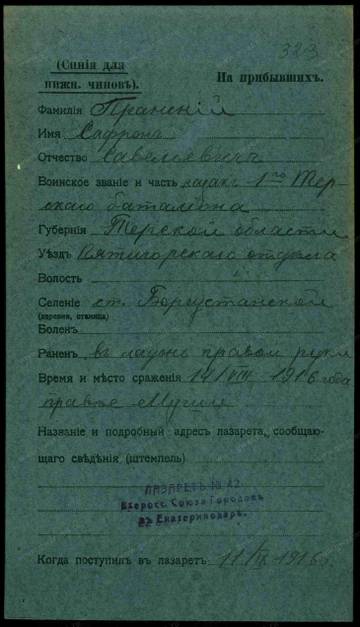 323
(Синія для
нижн. чиновъ).
На прибывшихъ.
Фамилія Пранскій
Имя Сафронъ
Отчество Савельевичъ
Воинское званіе и часть казакъ 1го Тер-
скаго баталіона
Губернія Терской области
Уѣздъ Пятигорскаго отдѣла
Волость
Селеніе ст. Боргустанской
(деревня, станица)
Боленъ
Раненъ въ ладонь правой руки
Время и мѣсто сраженія 14/VIII 1916 года
Названіе и подробный адресъ лазарета, сообщаю-
щаго свѣдѣнія (штемпель)
ЛАЗАРЕТЪ № 42
Всеросс. Союза Городовъ
въ Екатеринодарѣ.
Когда поступилъ въ лазаретъ 11/IX 1916 г.